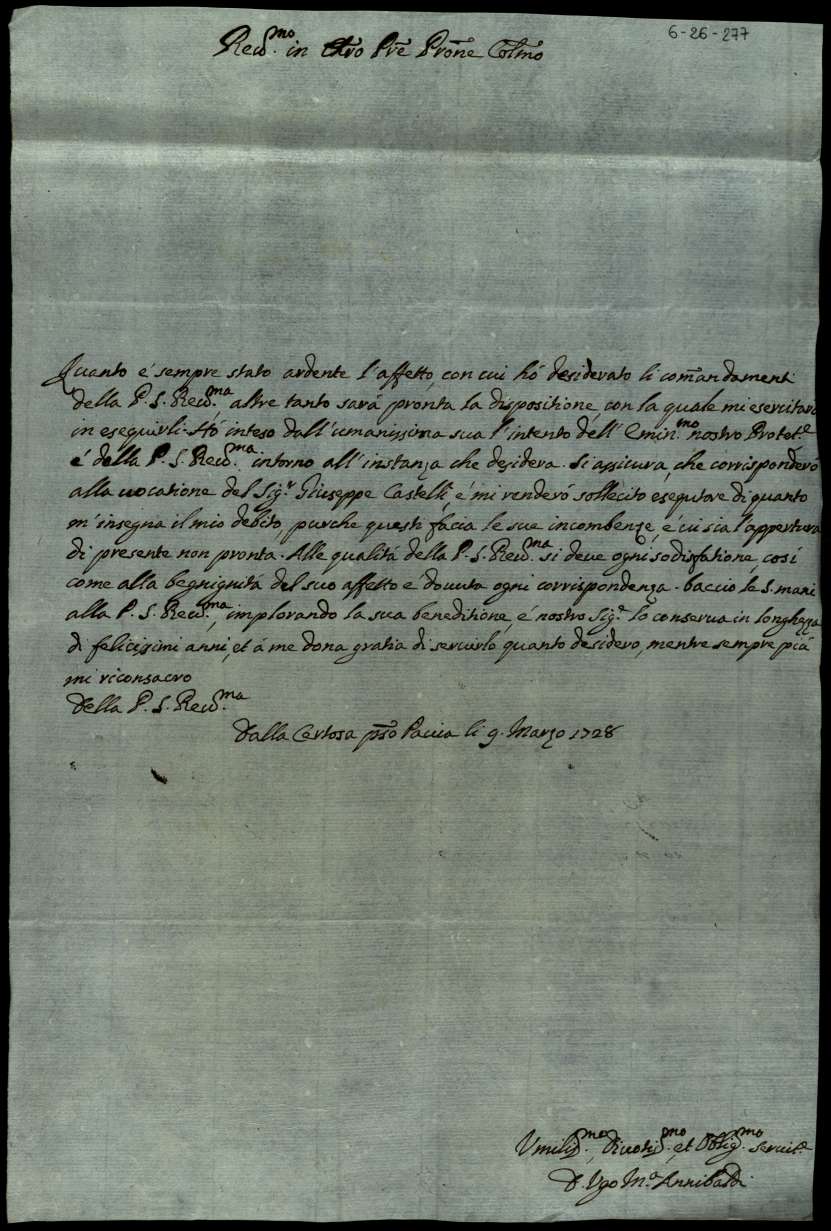 6-26-277
Rev.mo in Xro Prē Prōne Colmo
Quanto é sempre stato ardente l'affetto, con cui hó desiderato li com̄andamenti
della P. S. Rev.ma, altre tanto sará pronta la dispositione, con la quale mi esercitaró
in eseguirli. Hó inteso dall'umanissima sua l'intento dell'Emin.mo nostro Protet.e
é della P. S. Rev.ma intorno all'instanza che desidera. Si assicura, che corrisponderó
alla vocatione del Sig.r Giuseppe Castelli, é mi renderó sollecito esequtore di quanto
m'insegna il mio debito, purche questi facia le sue incombenze, e vi sia l'appertura
di presente non pronta. Alle qualitá della P. S. Rev.ma si deve ogni sodisfatione, cosí
come alla begnignitá del suo affetto e dovuta ogni corrispondenza. baccio le S. mani
alla P. S. Rev.ma, implorando la sua beneditione, é nostro Sig.e lo conserva in longhezza
di felicissimi anni, et á me dona gratia di servirlo quanto desidero, mentre sempre piú
mi riconsacro
Della P. S. Rev.ma
Dalla Certosa p̄so Pavia li 9. Marzo 1728
Umilis.mo, Divotis.mo, et Oblig.mo servit.e
D. Ugo M.a Annibaldi